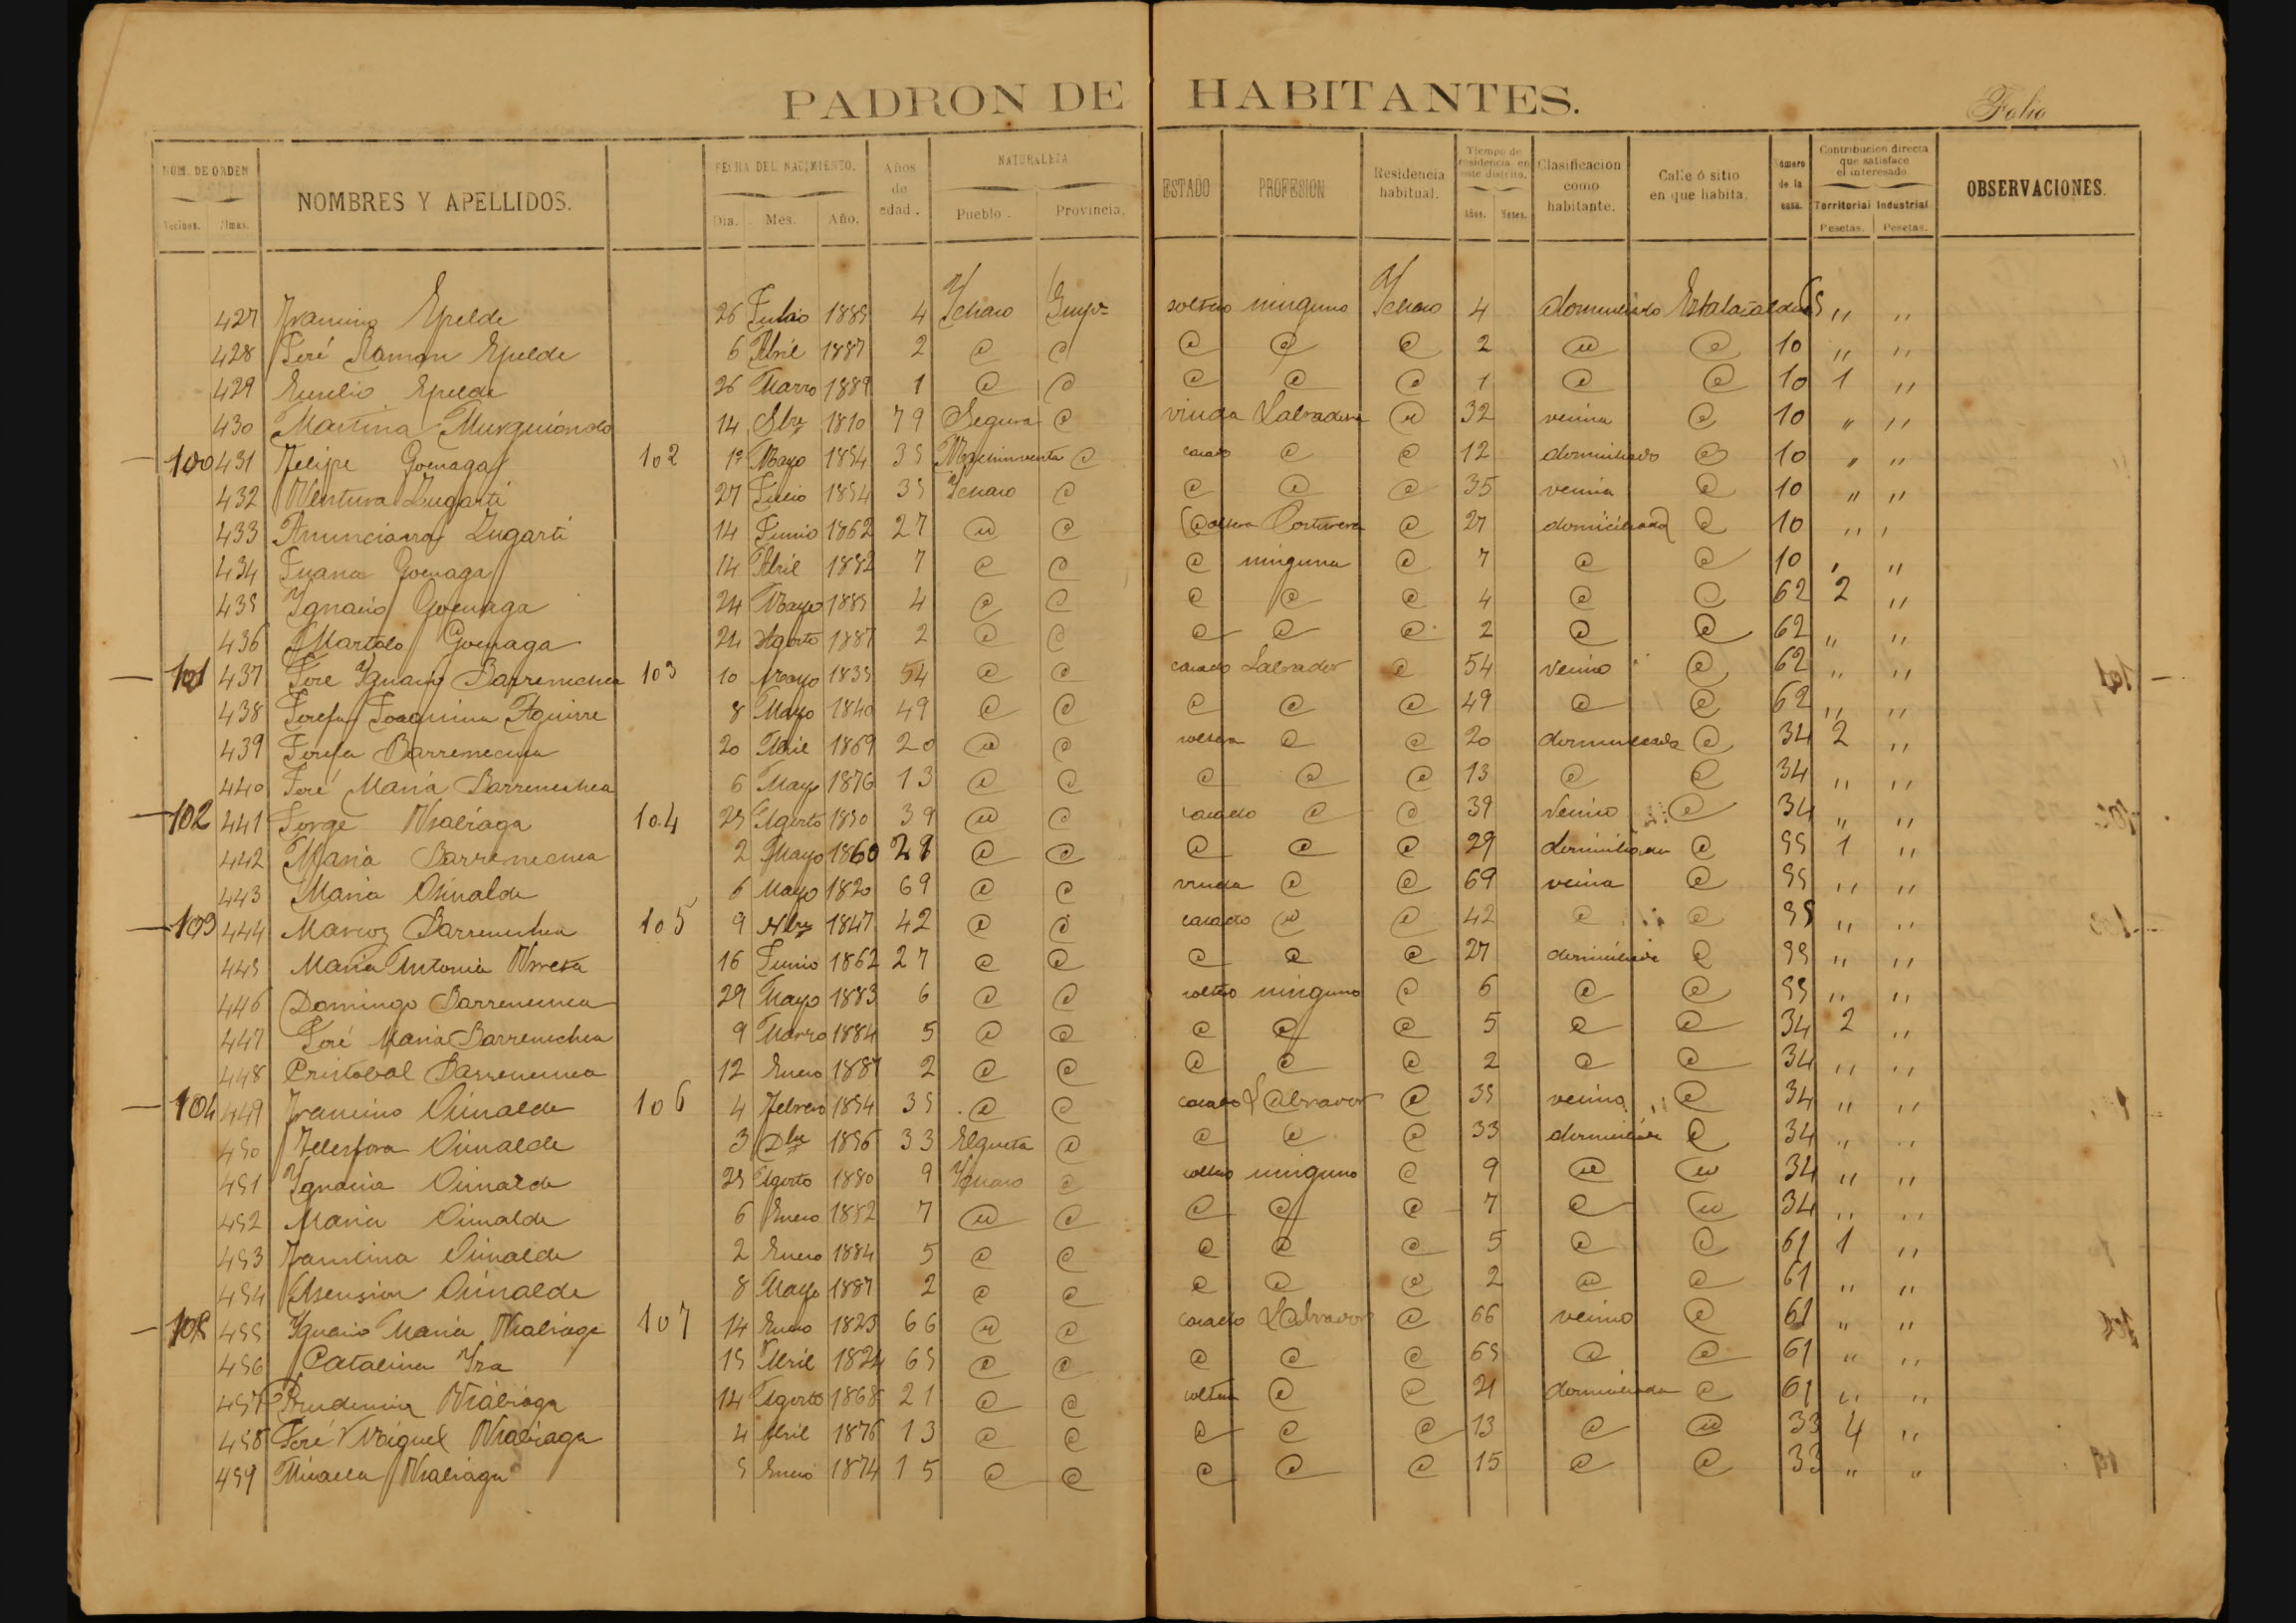 PADRON DE HABITANTES.
Folio
NÚM. DE ORDEN NOMBRES Y APELLIDOS. FECHA DEL NACIMIENTO. Años de edad. NATURALEZA ESTADO PROFESION Residencia habitual. Tiempo de residencia en este distrito. Clasificacion como habitante. Calle ó sitio en que habita. Número de la casa. Contribucion directa que satisface el interesado. OBSERVACIONES.
Vecinos. Almas. Dia. Mes. Año. Pueblo. Provincia. Años. Meses. Territorial Industrial
Pesetas. Pesetas.
427 Epelde 26 Julio 1885 4 Ychaso soltero ninguno Ychaso 4 " "
428 José Ramon Epelde 6 Abril 1887 2 @ @ @ @ @ 2 @ @ 10 " "
429 Epelde 26 Marzo 1889 1 @ @ @ @ @ 1 @ @ 10 1 "
430 Martina Murguiondo 14 1810 79 Segura @ viuda Labradora @ 32 vecina @ 10 " "
100 431 Felipe Goenaga 102 1º Mayo 1854 35 @ casado @ @ 12 domiciliado @ 10 " "
432 Ventura Lugarti 27 Julio 1854 35 Ychaso @ @ @ @ 35 vecina @ 10 " "
433 Anunciacia Lugarti 14 Junio 1862 27 @ @ soltera Costurera @ 27 domiciliada @ 10 " "
434 Juana Goenaga 14 Abril 1882 7 @ @ @ ninguna @ 7 @ @ 10 " "
435 Ygnacio Goenaga 24 Mayo 1885 4 @ @ @ @ @ 4 @ @ 62 2 "
436 Goenaga 24 Agosto 1887 2 @ @ @ @ @ 2 @ @ 62 " "
101 437 José Ygnacio Barrenechea 103 10 Mayo 1835 54 @ @ casado Labrador @ 54 vecino @ 62 " "
438 Josefa Joaquina Aguirre 8 Mayo 1840 49 @ @ @ @ @ 49 @ @ 62 " "
439 Josefa Barrenechea 20 Abril 1869 20 @ @ soltera @ @ 20 domiciliada @ 34 2 "
440 José Maria Barrenechea 6 Mayo 1876 13 @ @ @ @ @ 13 @ @ 34 " "
102 441 Jorge 104 25 Agosto 1850 39 @ @ casado @ @ 39 Vecino @ 34 " "
442 Maria Barrenechea 2 Mayo 1860 29 @ @ @ @ @ 29 domiciliada @ 55 1 "
443 Maria 6 Mayo 1820 69 @ @ viuda @ @ 69 vecina @ 55 " "
103 444 Marcos Barrenechea 105 9 1847 42 @ @ casado @ @ 42 @ @ 55 " "
445 Maria Antonia 16 Junio 1862 27 @ @ @ @ @ 27 @ 55 " "
446 Domingo Barrenechea 29 Mayo 1883 6 @ @ soltero ninguno @ 6 @ @ 55 " "
447 José Maria Barrenechea 9 Marzo 1884 5 @ @ @ @ @ 5 @ @ 34 2 "
448 Cristobal Barrenechea 12 Enero 1887 2 @ @ @ @ @ 2 @ @ 34 " "
104 449 106 4 Febrero 1854 35 @ @ casado Labrador @ 35 vecino @ 34 " "
450 Telesfora 3 1856 33 Elgueta @ @ @ @ 33 @ 34 " "
451 Ygnacia 25 Agosto 1880 9 Ychaso @ soltero ninguno @ 9 @ @ 34 " "
452 Maria 6 Enero 1882 7 @ @ @ @ @ 7 @ @ 34 " "
453 2 Enero 1884 5 @ @ @ @ @ 5 @ @ 61 1 "
454 Asension 8 Mayo 1887 2 @ @ @ @ @ 2 @ @ 61 " "
105 455 Ygnacio Maria 107 14 Enero 1823 66 @ @ casado Labrador @ 66 vecino @ 61 " "
456 Catalina Yza 15 Abril 1824 65 @ @ @ @ @ 65 @ @ 61 " "
457 Prudencia 14 Agosto 1868 21 @ @ soltera @ @ 21 domiciliada @ 61 " "
458 José Miguel 4 Abril 1876 13 @ @ @ @ @ 13 @ @ 33 4 "
459 Micaela 5 Enero 1874 15 @ @ @ @ @ 15 @ @ 33 " "